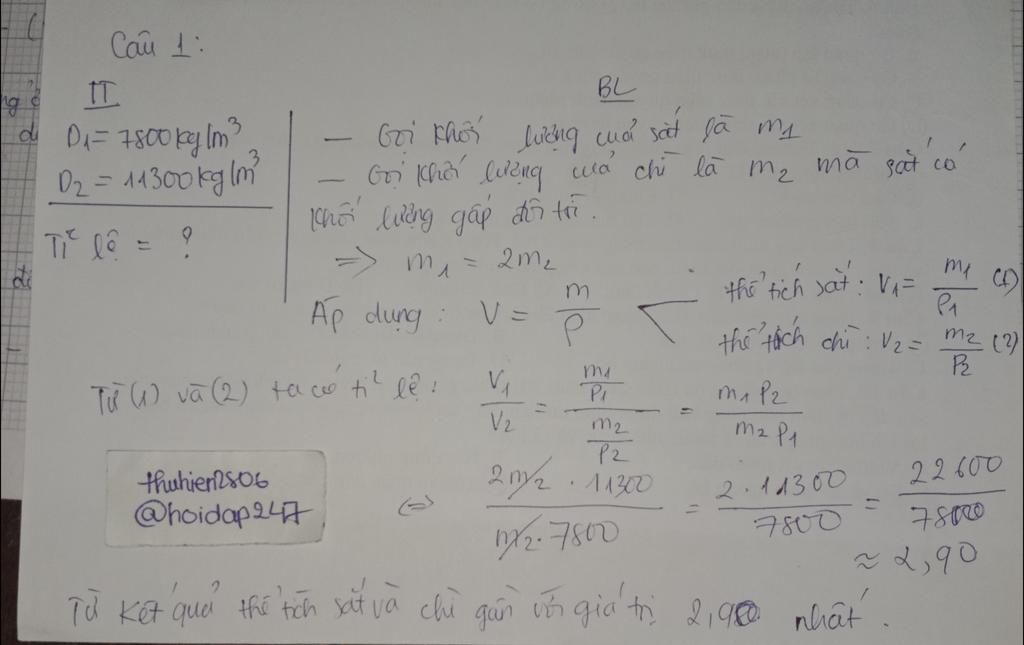 Câu 1:
TT
D1 = 7800kg/m³
D2 = 11300kg/m³
Tỉ lệ = ?
BL
— Gọi khối lượng cuả sắt là m1
— Gọi khối lượng cuả chì là m2 mà sắt có
khối lượng gấp đôi trì.
=> m1 = 2m2
Áp dụng: V = m/ρ
thể tích sắt: V1 = m1/ρ1 (1)
thể tích chì: V2 = m2/ρ2 (2)
Từ (1) và (2) ta có tỉ lệ: V1/V2 = (m1/ρ1)/(m2/ρ2) = m1ρ2/m2ρ1
<=> 2m2 . 11300/m2.7800 = 2.11300/7800 = 22600/7800
≈ 2,90
thuhien2806
@hoidap247
Từ kết quả thể tích sắt và chì gần với giá trị 2,90 nhất.